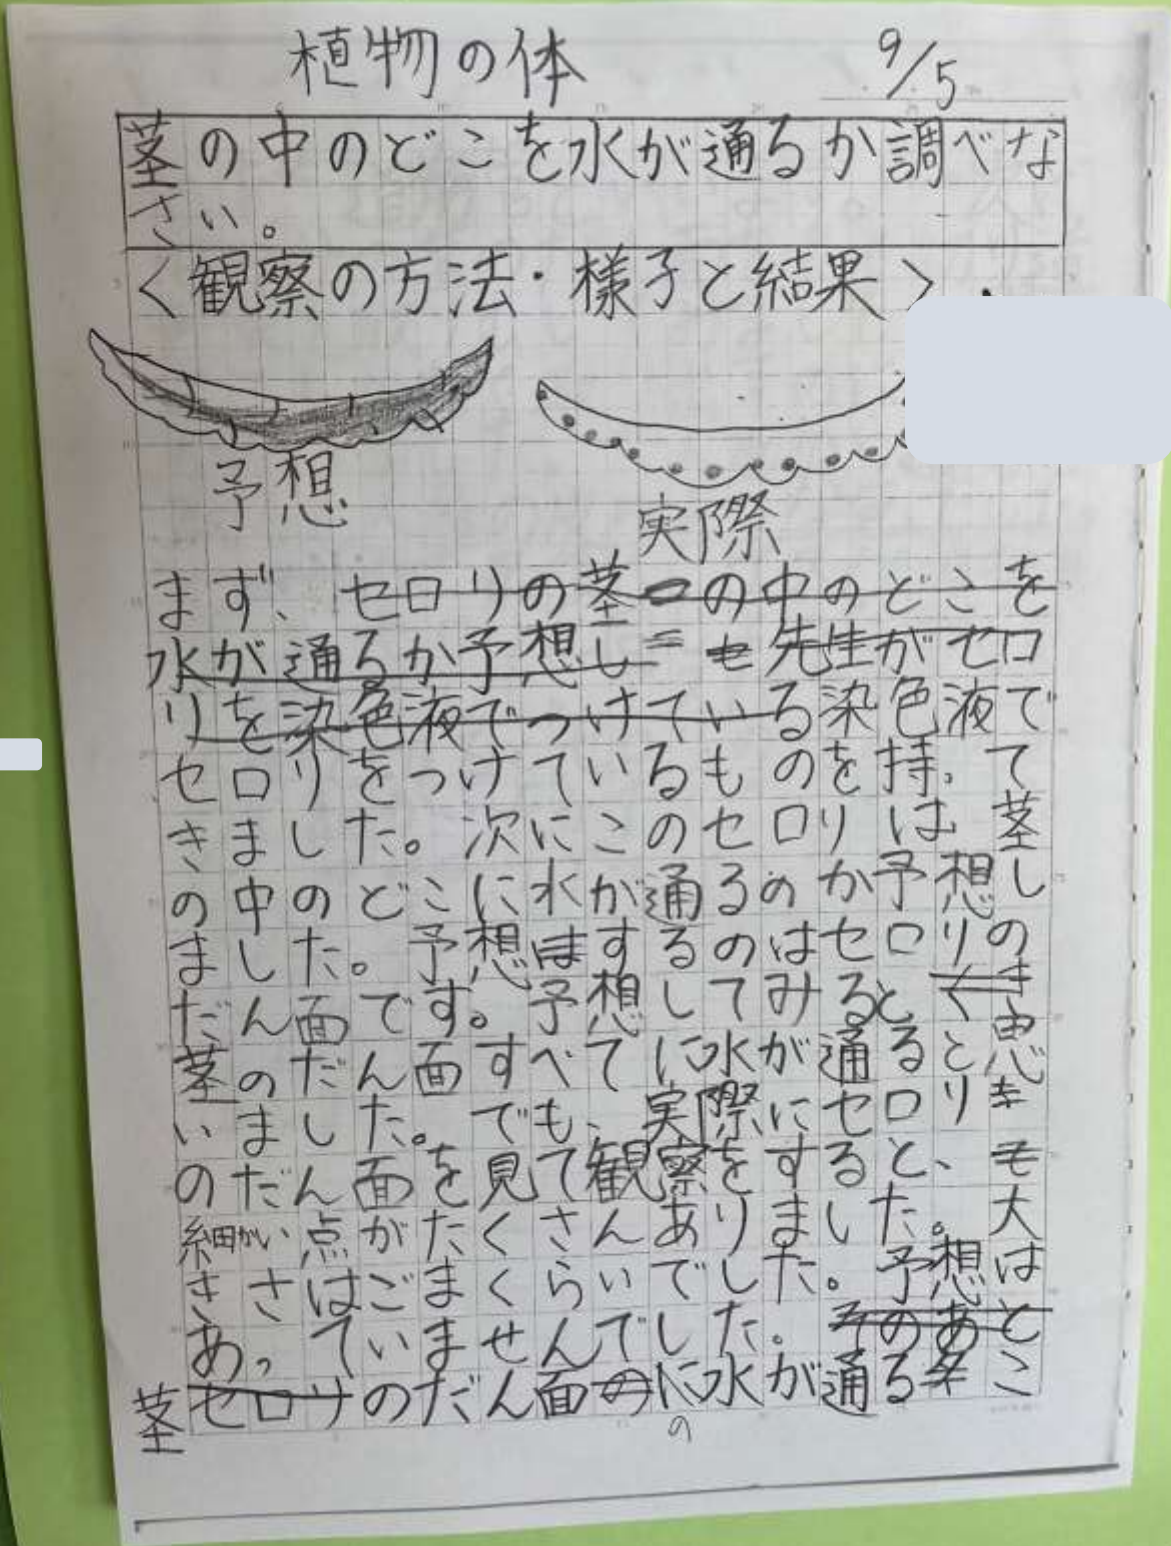 植物の体 9/5
茎の中のどこを水が通るか調べな
さい。
<観察の方法・様子と結果>
予想
実際
まず、セロリの茎の中のどこを
水が通るか予想し 先生がセロ
リを染色液でつけている染色液で
セロリをつけているものを持って
きました。次にこのセロリは、茎
の中のどこに水が通るのか予想し
ました。予想はするのはセロリの
だん面です。予想してみると
茎のだん面すべてに水が通ると思
いました。でも、実際にセロリ
のだん面を見て観察をすると、
細かい点がたくさんありました。大
きさはごまくらいでした。予想は
あっていませんでした。そのあと
茎セロリのだん面のに水が通るこ
の